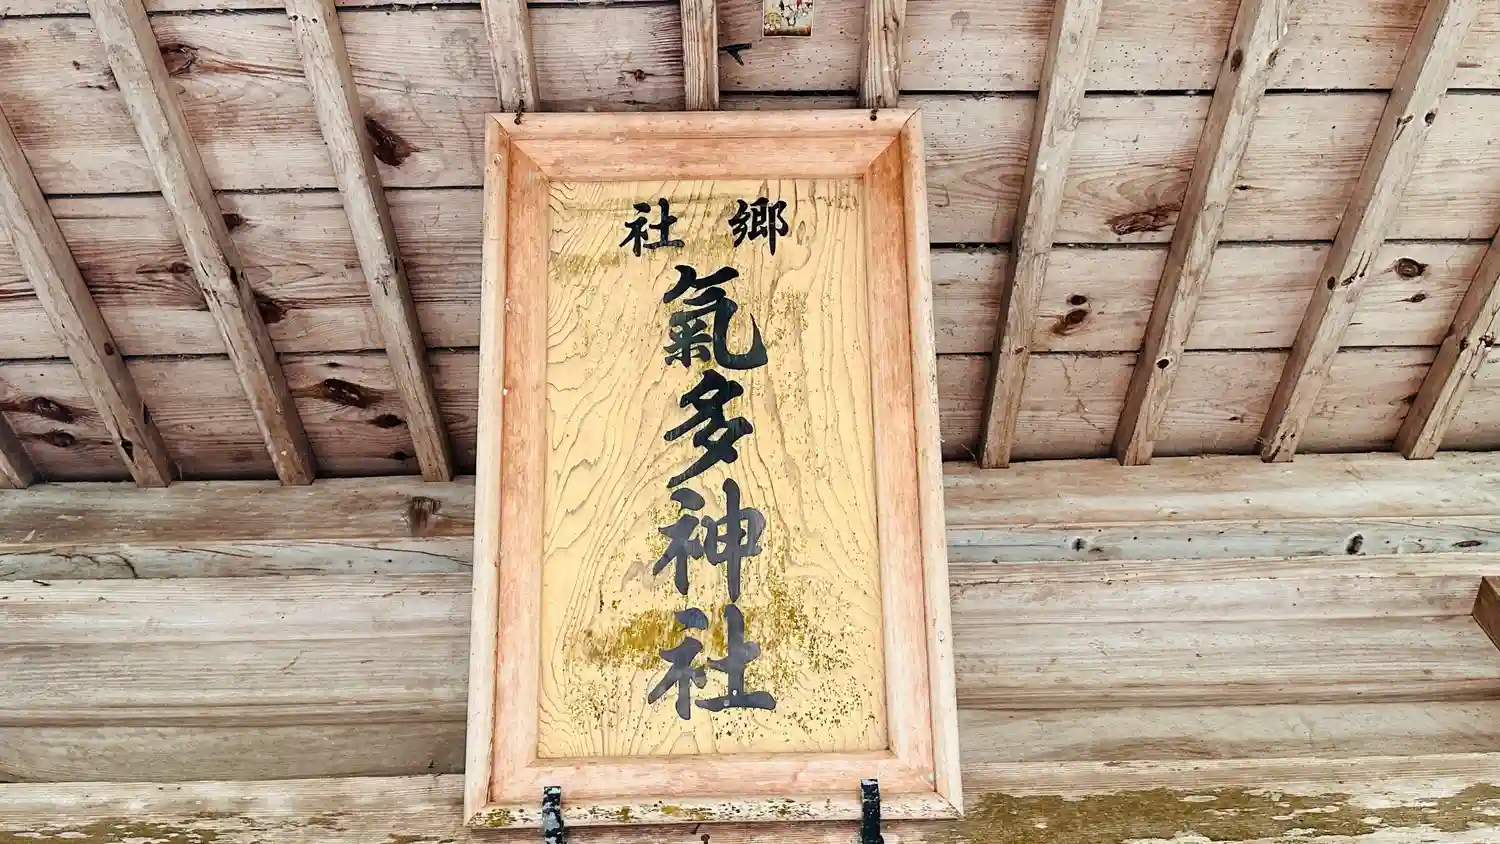 郷社
氣多神社